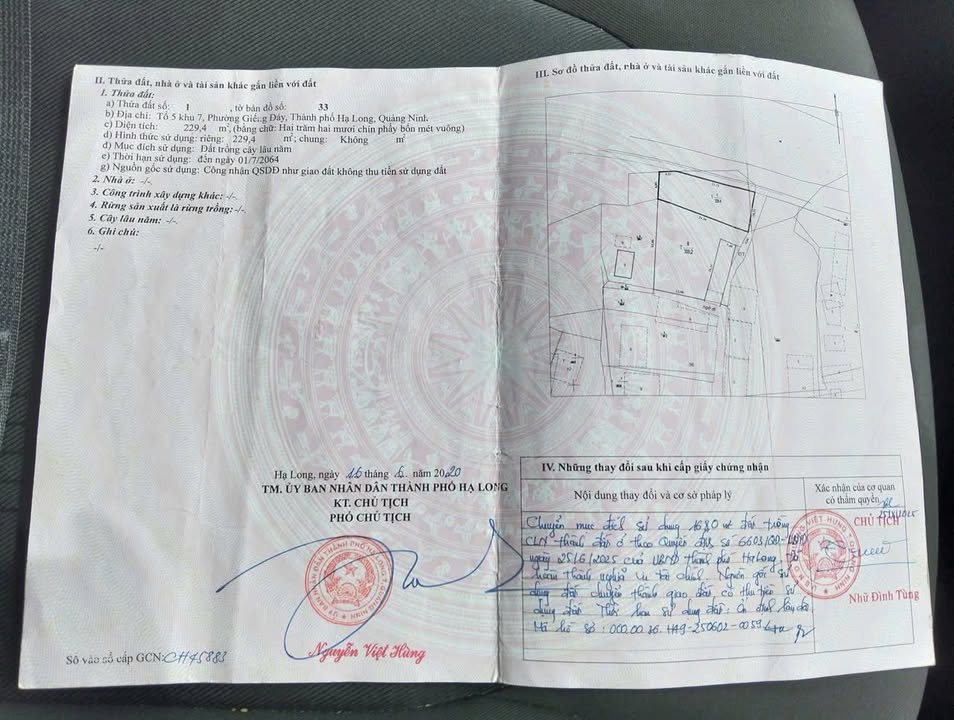 II. Thửa đất, nhà ở và tài sản khác gắn liền với đất
1. Thửa đất:
a) Thửa đất số: 1 , tờ bản đồ số: 33
b) Địa chỉ: Tổ 5 khu 7, Phường Giếng Đáy, Thành phố Hạ Long, Quảng Ninh
c) Diện tích: 229,4 m², (bằng chữ: Hai trăm hai mươi chín phẩy bốn mét vuông)
d) Hình thức sử dụng: riêng: 229,4 m²; chung: Không m²
đ) Mục đích sử dụng: Đất trồng cây lâu năm
e) Thời hạn sử dụng: đến ngày 01/7/2064
g) Nguồn gốc sử dụng: Công nhận QSDĐ như giao đất không thu tiền sử dụng đất
2. Nhà ở: -/-
3. Công trình xây dựng khác: -/-
4. Rừng sản xuất là rừng trồng: -/-
5. Cây lâu năm: -/-
6. Ghi chú:
-/-
Hạ Long, ngày 16 tháng 6 năm 2020
TM. ỦY BAN NHÂN DÂN THÀNH PHỐ HẠ LONG
KT. CHỦ TỊCH
PHÓ CHỦ TỊCH
Nguyễn Việt Hùng
Số vào sổ cấp GCN: CH45883
III. Sơ đồ thửa đất, nhà ở và tài sản khác gắn liền với đất
IV. Những thay đổi sau khi cấp giấy chứng nhận
Nội dung thay đổi và cơ sở pháp lý
Xác nhận của cơ quan
có thẩm quyền
CHỦ TỊCH
Chuyển mục đích sử dụng 168,0 m² đất trồng
CLN thành đất ở theo Quyết định số 6603/QĐ-UBND
ngày 25/6/2025 của UBND thành phố Hạ Long, đã
hoàn thành nghĩa vụ tài chính. Nguồn gốc sử
dụng đất chuyển thành giao đất có thu tiền sử
dụng đất. Thời hạn sử dụng đất: Ổn định lâu dài
Mã hồ sơ: 000.00.36.H49-250602-0059
Nhữ Đình Tùng